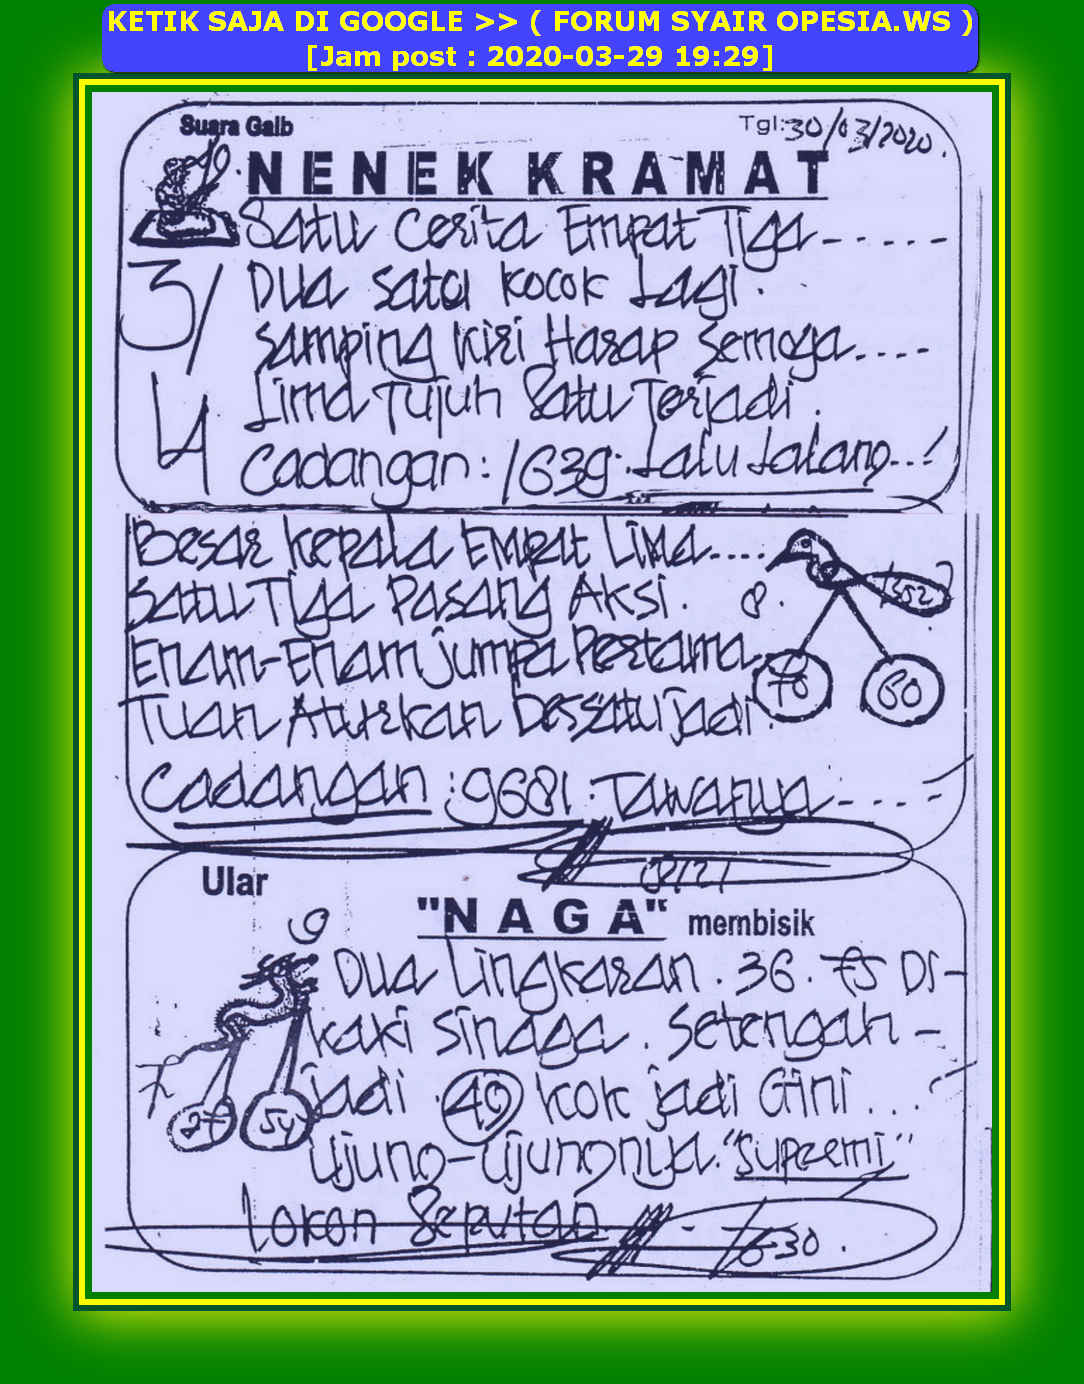 KETIK SAJA DI GOOGLE >> ( FORUM SYAIR OPESIA.WS )
[Jam post : 2020-03-29 19:29]
Suara Gaib
Tgl:30/03/2020.
NENEK KRAMAT
Satu Cerita Empat Tiga------
3/ Dua satu kocok Lagi.
samping kiri Harap semoga....
4 Lima Tujuh Satu Terjadi.
Cadangan: 1639. Lalu Lalang...!
Besar kepala Empat Lima....
Satu Tiga Pasang Aksi. 8.
Enam-Enam jumpa Pertama
70 60
Tuan Aturkan Des satu jadi.
Cadangan : 9681. Tawanya-----
Ular
"NAGA" membisik
9
Dua Lingkaran. 36. 75 Di-
kaki sinaga. Setengah-
7
jadi. 40 kok jadi Gini...
27 54
Ujung-ujungnya. "Supremi"
Lokon Seputan.
7630.